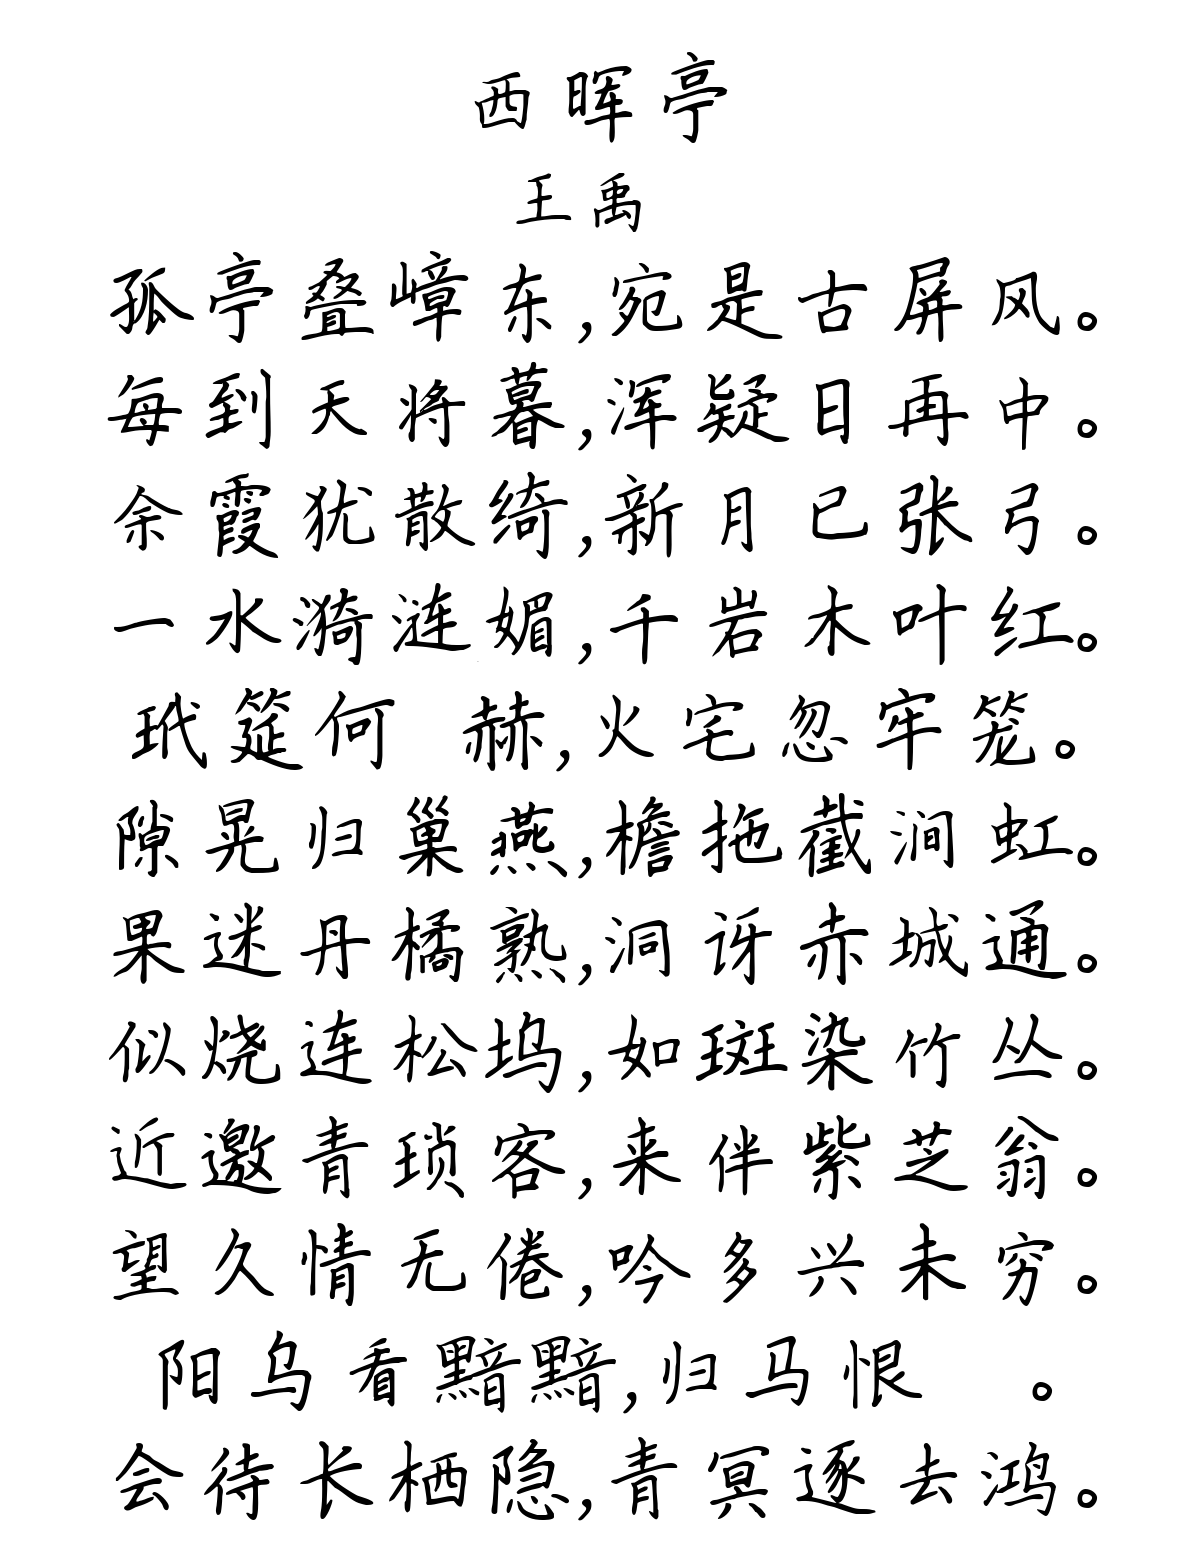 西晖亭
王禹
孤亭叠嶂东,宛是古屏风。
每到天将暮,浑疑日再中。
余霞犹散绮,新月已张弓。
一水漪涟媚,千岩木叶红。
玳筵何 赫,火宅忽牢笼。
隙晃归巢燕,檐拖截涧虹。
果迷丹橘熟,洞讶赤城通。
似烧连松坞,如斑染竹丛。
近邀青琐客,来伴紫芝翁。
望久情无倦,吟多兴未穷。
阳乌看黯黯,归马恨 。
会待长栖隐,青冥逐去鸿。